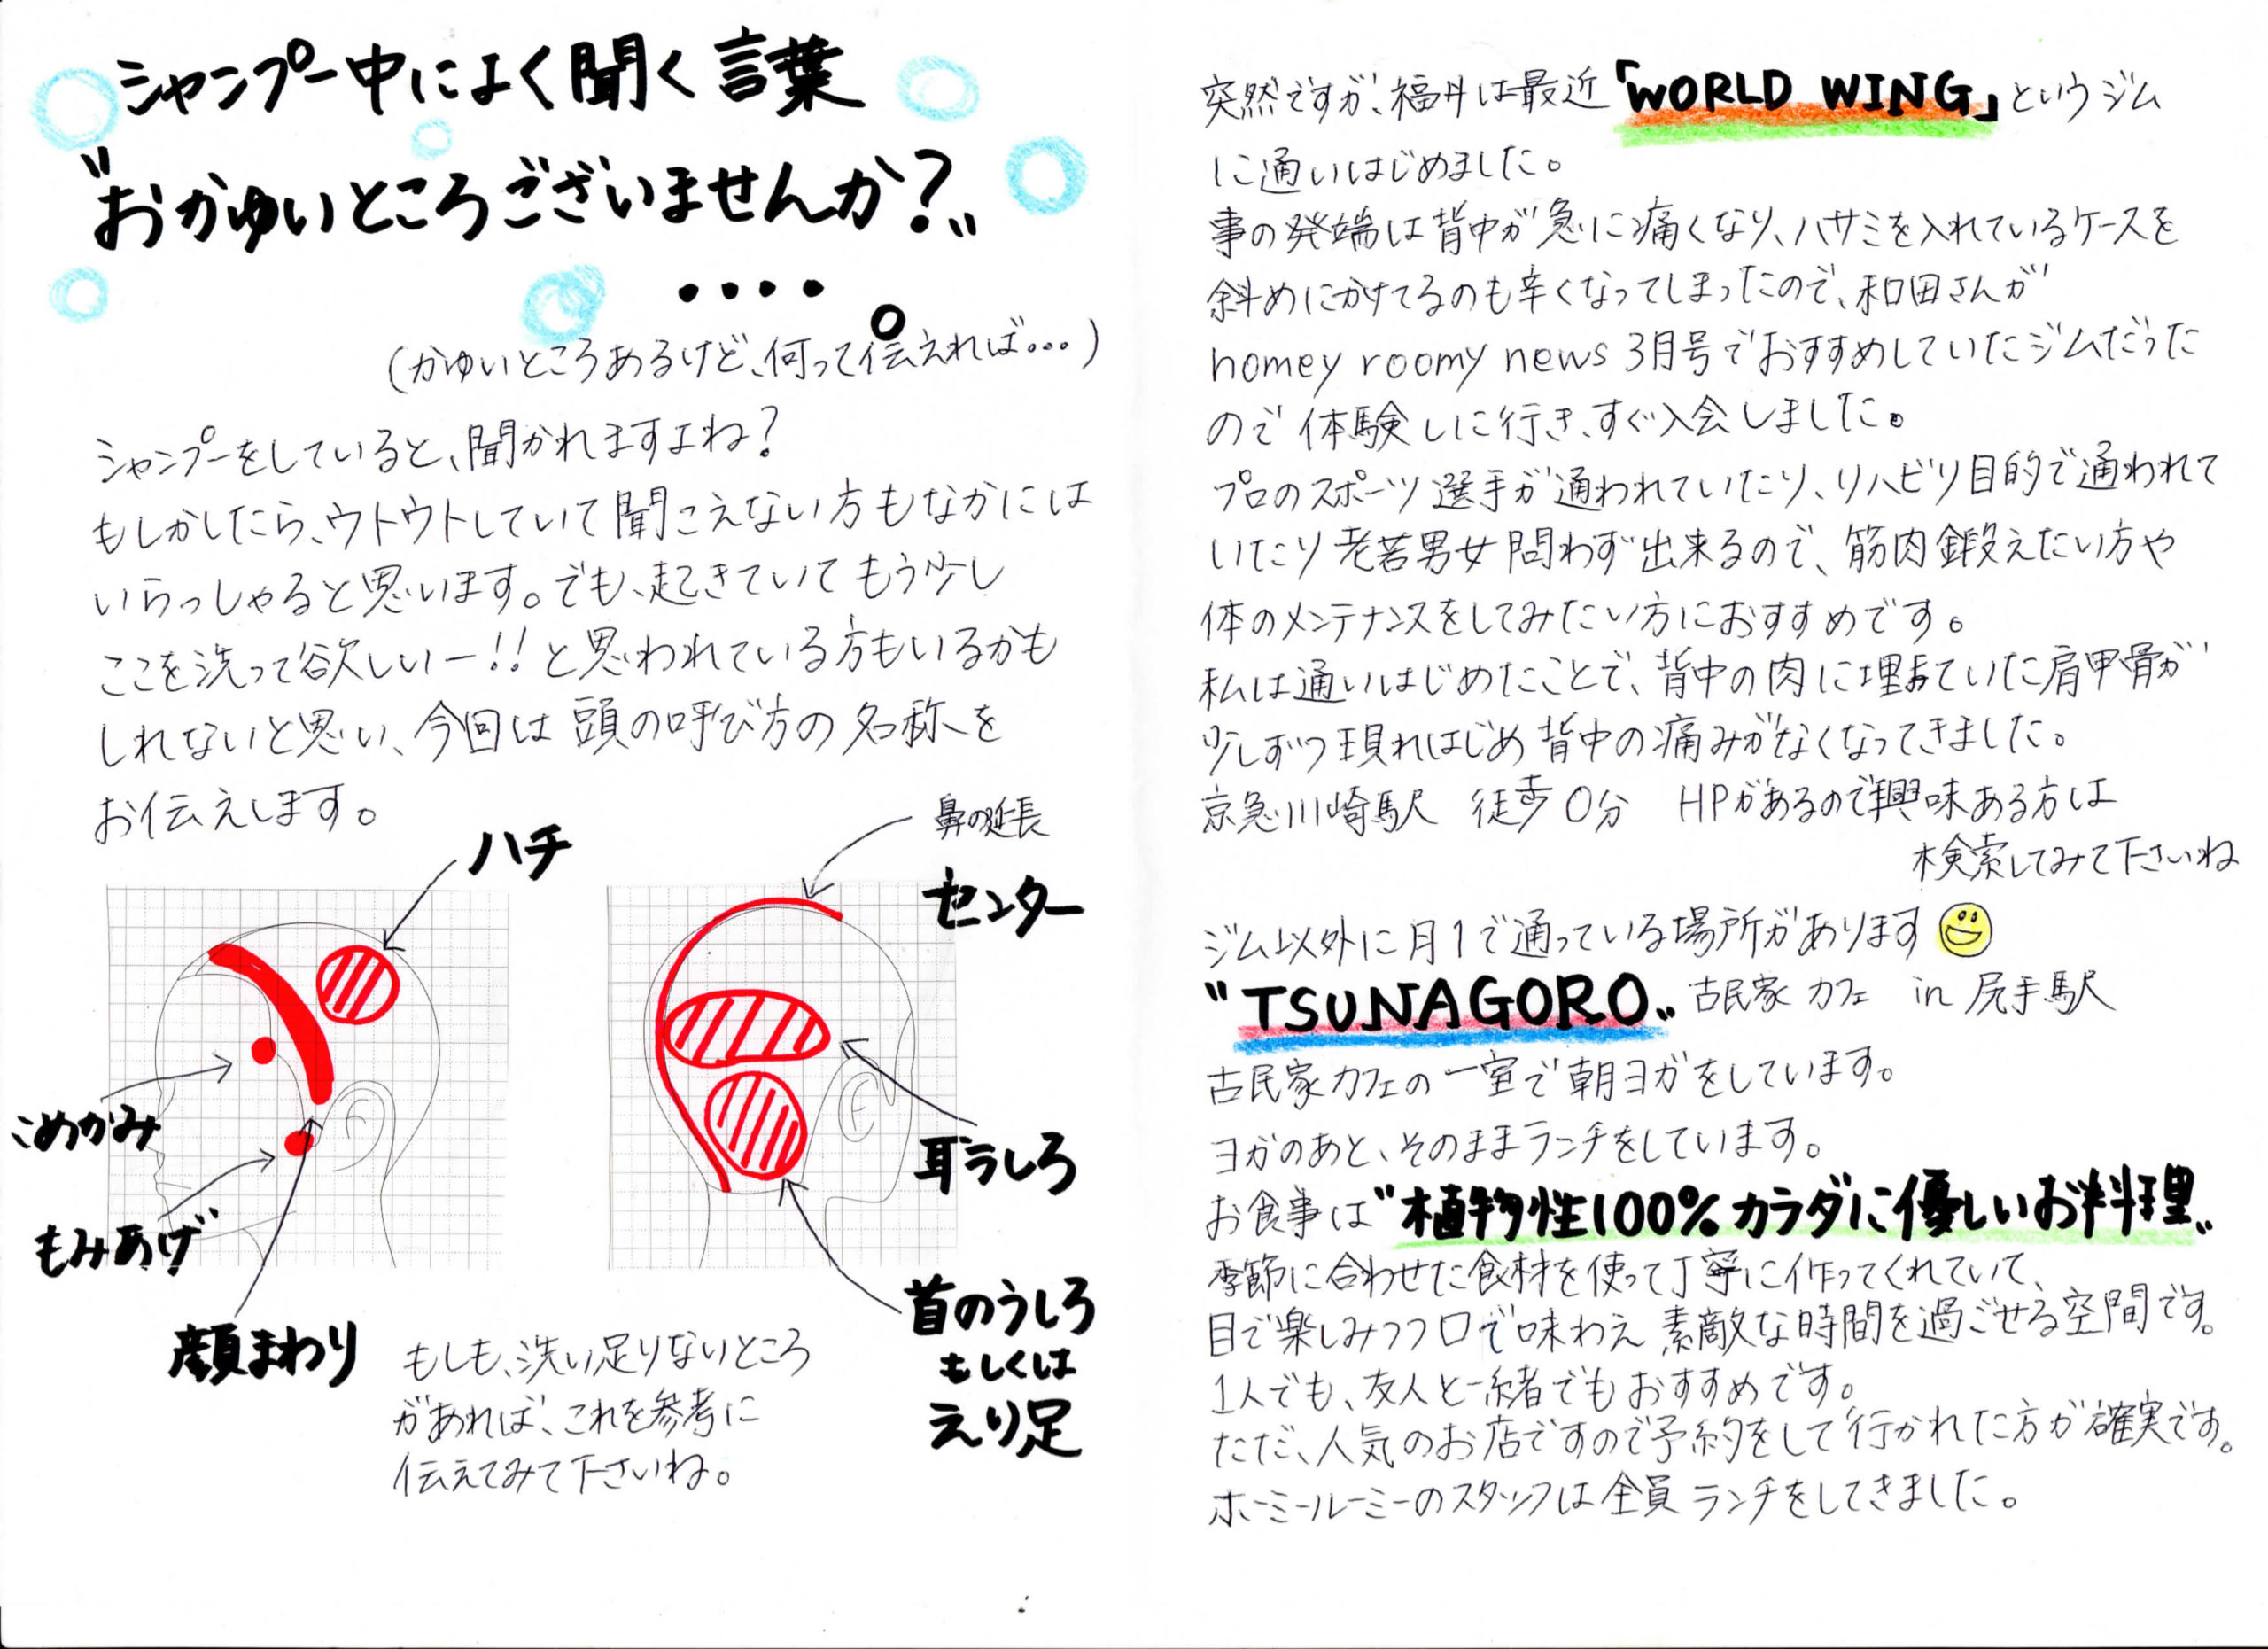 シャンプー中によく聞く言葉
"おかゆいところございませんか?"
・・・・
(かゆいところあるけど、何って伝えれば…)
シャンプーをしていると、聞かれますよね?
もしかしたら、ウトウトしていて聞こえない方もなかには
いらっしゃると思います。でも、起きていてもう少し
ここを洗って欲しいー!!と思われている方もいるかも
しれないと思い、今回は頭の呼び方の名称を
お伝えします。
ハチ
こめかみ
もみあげ
顔まわり
鼻の延長
センター
耳うしろ
首のうしろ
もしくは
えり足
もしも、洗い足りないところ
があれば、これを参考に
伝えてみて下さいね。
突然ですが、福井は最近「WORLD WING」というジム
に通いはじめました。
事の発端は背中が急に痛くなり、ハサミを入れているケースを
斜めにかけてるのも辛くなってしまったので、和田さんが
homey roomy news 3月号でおすすめしていたジムだった
ので体験しに行き、すぐ入会しました。
プロのスポーツ選手が通われていたり、リハビリ目的で通われて
いたり老若男女問わず出来るので、筋肉鍛えたい方や
体のメンテナンスをしてみたい方におすすめです。
私は通いはじめたことで、背中の肉に埋まっていた肩甲骨が
少しずつ現れはじめ背中の痛みがなくなってきました。
京急川崎駅 徒歩0分 HPがあるので興味ある方は
検索してみて下さいね
ジム以外に月1で通っている場所があります
"TSUNAGORO" 古民家カフェ in 尻手駅
古民家カフェの一室で朝ヨガをしています。
ヨガのあと、そのままランチをしています。
お食事は"植物性100%カラダに優しいお料理"
季節に合わせた食材を使って丁寧に作ってくれていて、
目で楽しみつつ口で味わえ素敵な時間を過ごせる空間です。
1人でも、友人と一緒でもおすすめです。
ただ、人気のお店ですので予約をして行かれた方が確実です。
ホーミールーミーのスタッフは全員ランチをしてきました。